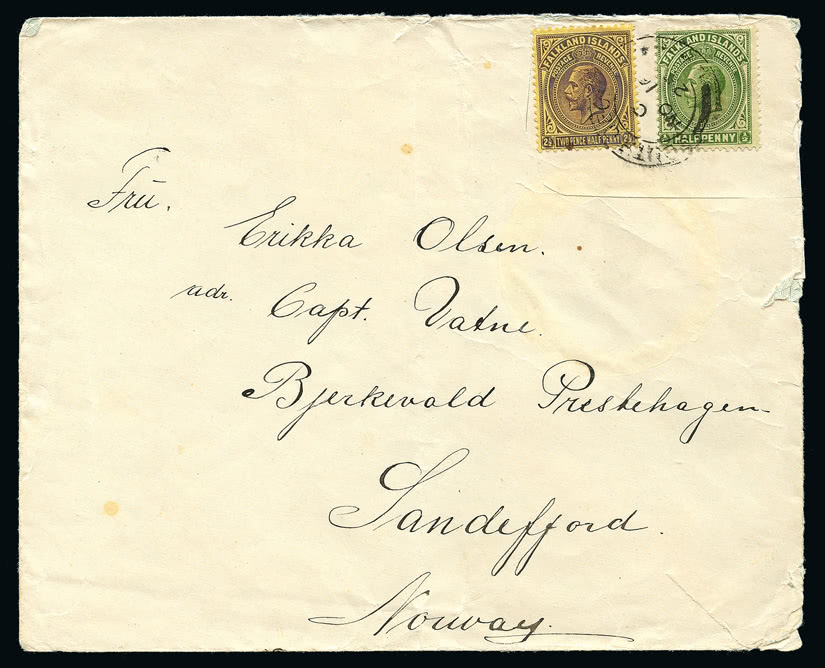 FALKLAND ISLANDS
POSTAGE REVENUE
2½ TWO PENCE HALF PENNY 2½
FALKLAND ISLANDS
POSTAGE REVENUE
½ HALFPENNY ½
Frü.
Erikka Olsen.
adr. Capt. Vatne.
Bjerkevold Prestehagen
Sandefjord.
Norway.